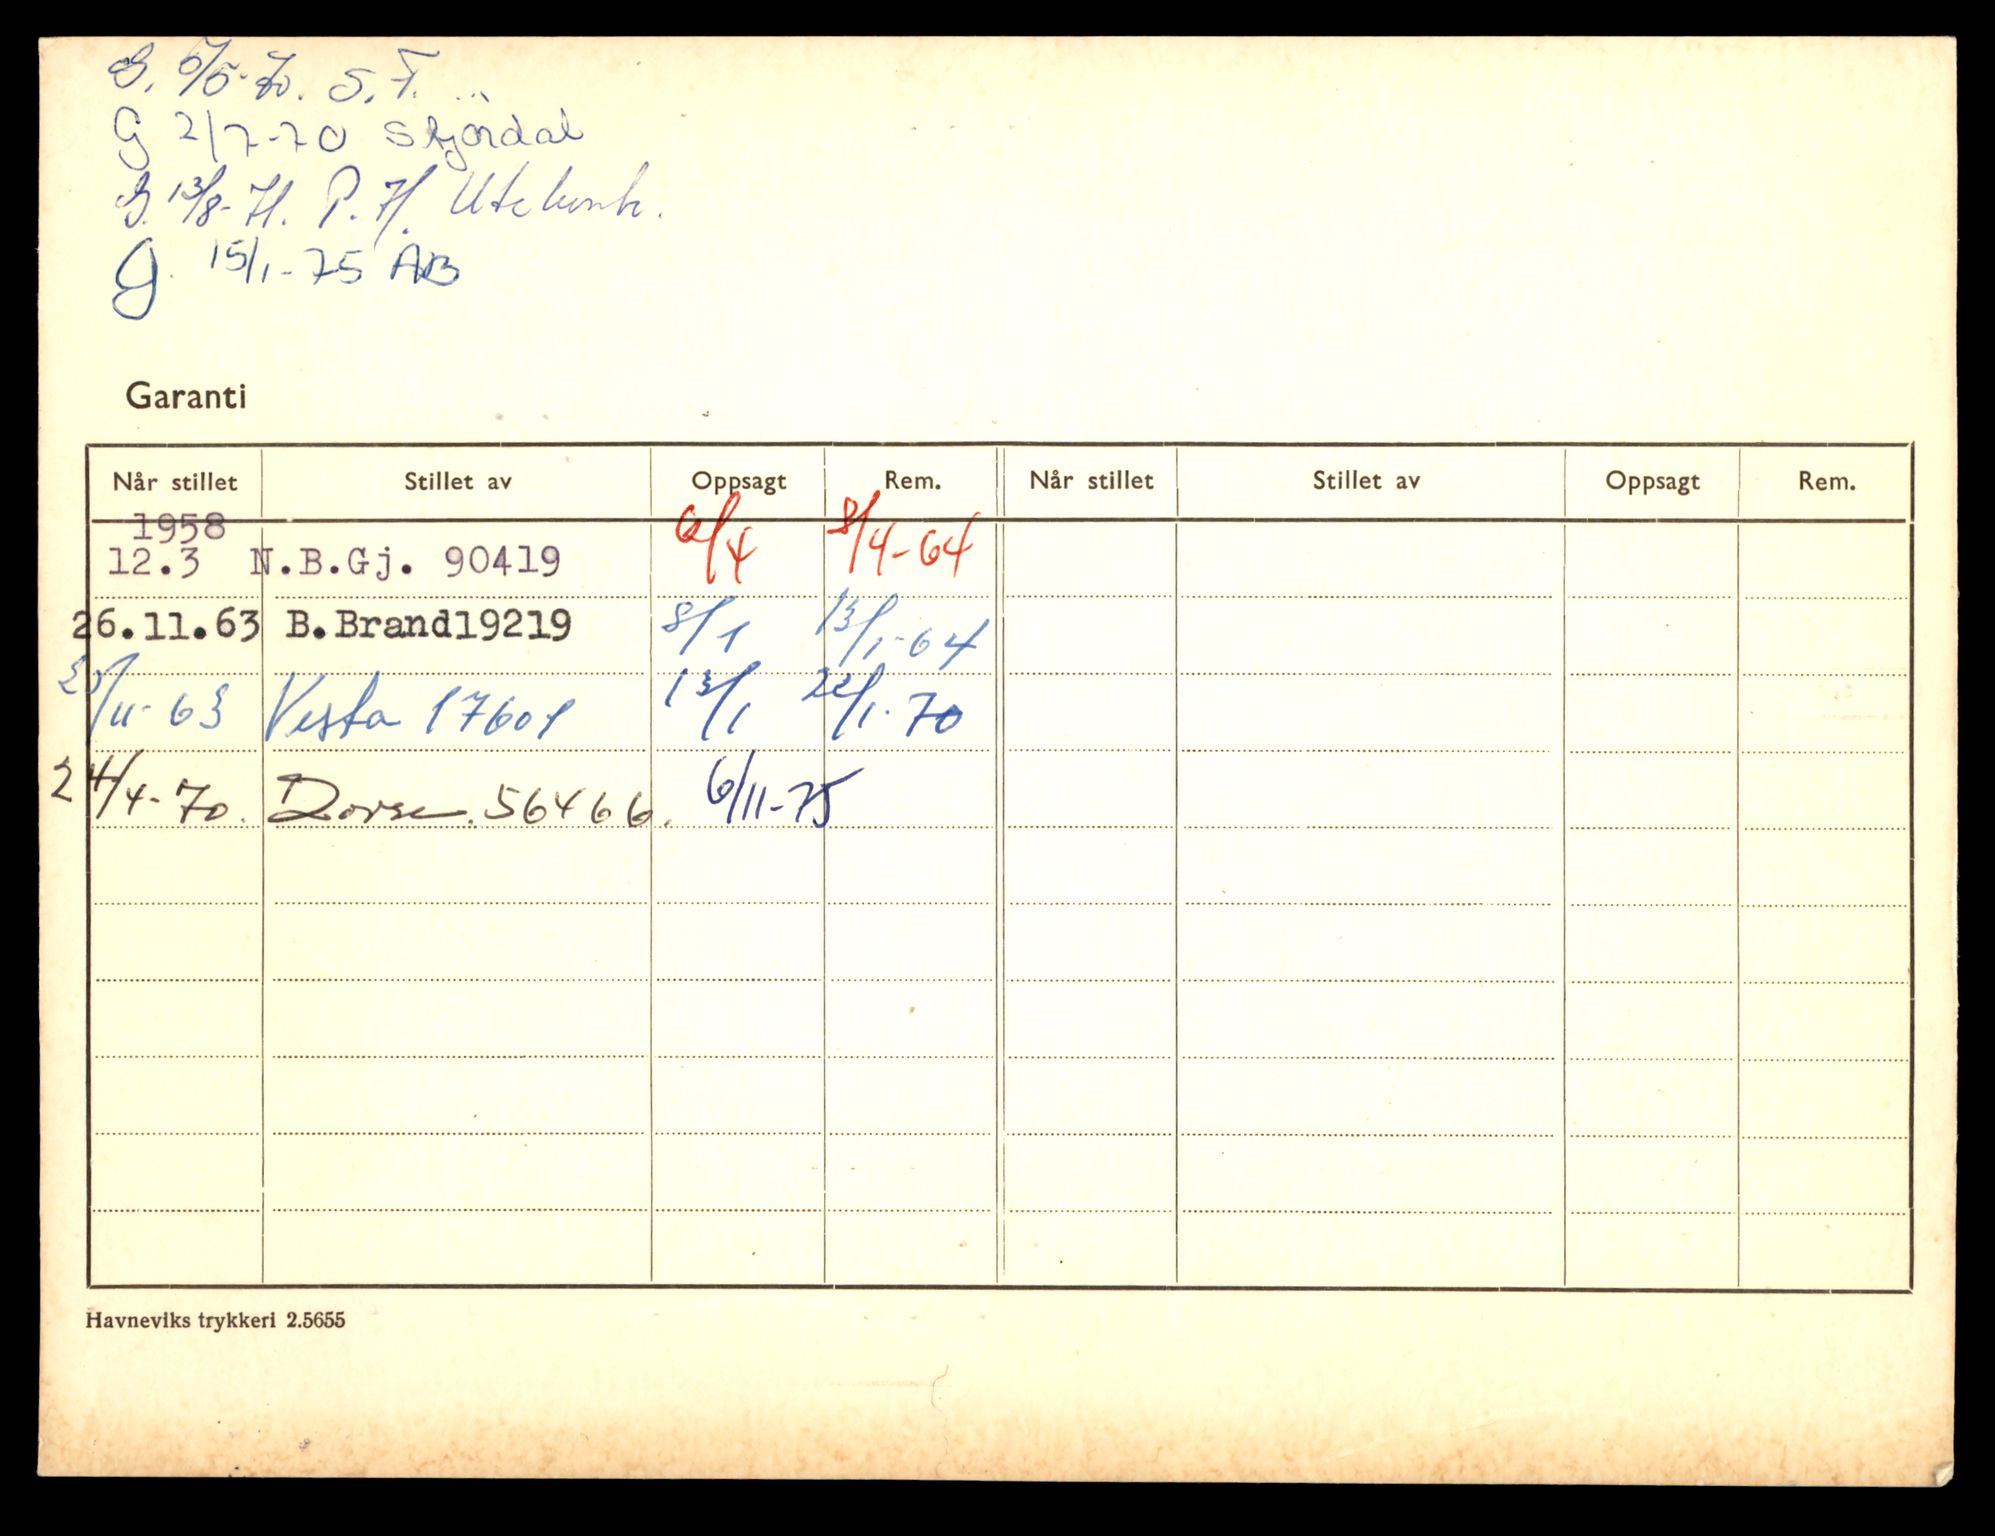 G. 6/5-70. S.F.
G 2/7-70 Skjørdal
G. 13/8-71. P.H. Utekont.
G. 15/1-75 AB
Garanti
Når stillet Stillet av Oppsagt Rem. Når stillet Stillet av Oppsagt Rem.
1958
12.3 N.B.Gj. 90419 6/4 8/4-64
26.11.63 B.Brand19219 8/1 13/1-64
/11-63 Vesta 17601 13/1 22/1-70
24/4-70. 56466. 6/11-75
Havneviks trykkeri 2.5655